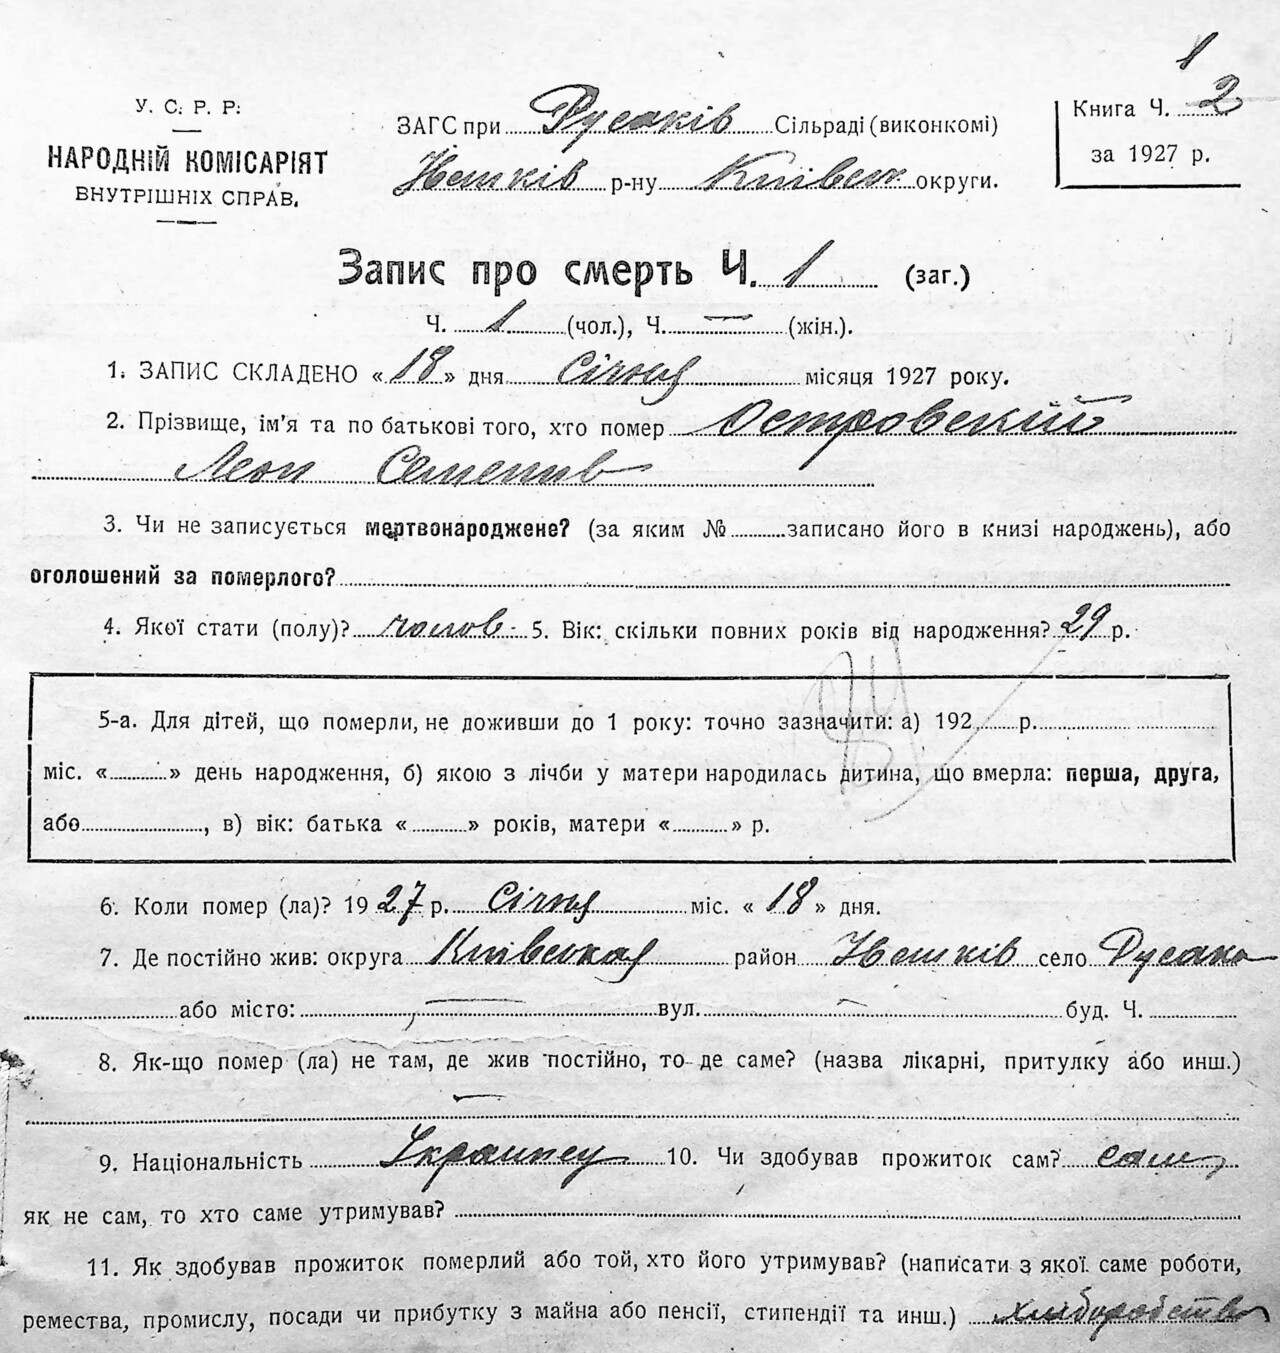 1
У. С. Р. Р.
НАРОДНІЙ КОМІСАРІЯТ
ВНУТРІШНІХ СПРАВ.
ЗАГС при Русаків Сільраді (виконкомі)
р-ну Київськ округи.
Книга Ч. 2
за 1927 р.
Запис про смерть Ч. 1 (заг.)
Ч. 1 (чол.), Ч. — (жін.).
1. ЗАПИС СКЛАДЕНО «18» дня Січня місяця 1927 року.
2. Прізвище, ім'я та по батькові того, хто помер Островский
Леон Семенів
3. Чи не записується мертвонароджене? (за яким № записано його в книзі народжень), або
оголошений за померлого?
4. Якої стати (полу)? чолов. 5. Вік: скільки повних років від народження? 29 р.
5-а. Для дітей, що померли, не доживши до 1 року: точно зазначити: а) 192 р.
міс. « » день народження, б) якою з лічби у матери народилась дитина, що вмерла: перша, друга,
або , в) вік: батька « » років, матери « » р.
6. Коли помер (ла)? 1927 р. Січня міс. «18» дня.
7. Де постійно жив: округа Київська район село Русаки
або місто: — вул. — буд. Ч.
8. Як-що помер (ла) не там, де жив постійно, то де саме? (назва лікарні, притулку або инш.)
—
9. Національність Українец 10. Чи здобував прожиток сам? сам
як не сам, то хто саме утримував?
11. Як здобував прожиток померлий або той, хто його утримував? (написати з якої саме роботи,
ремества, промислу, посади чи прибутку з майна або пенсії, стипендії та инш.) хліборобство